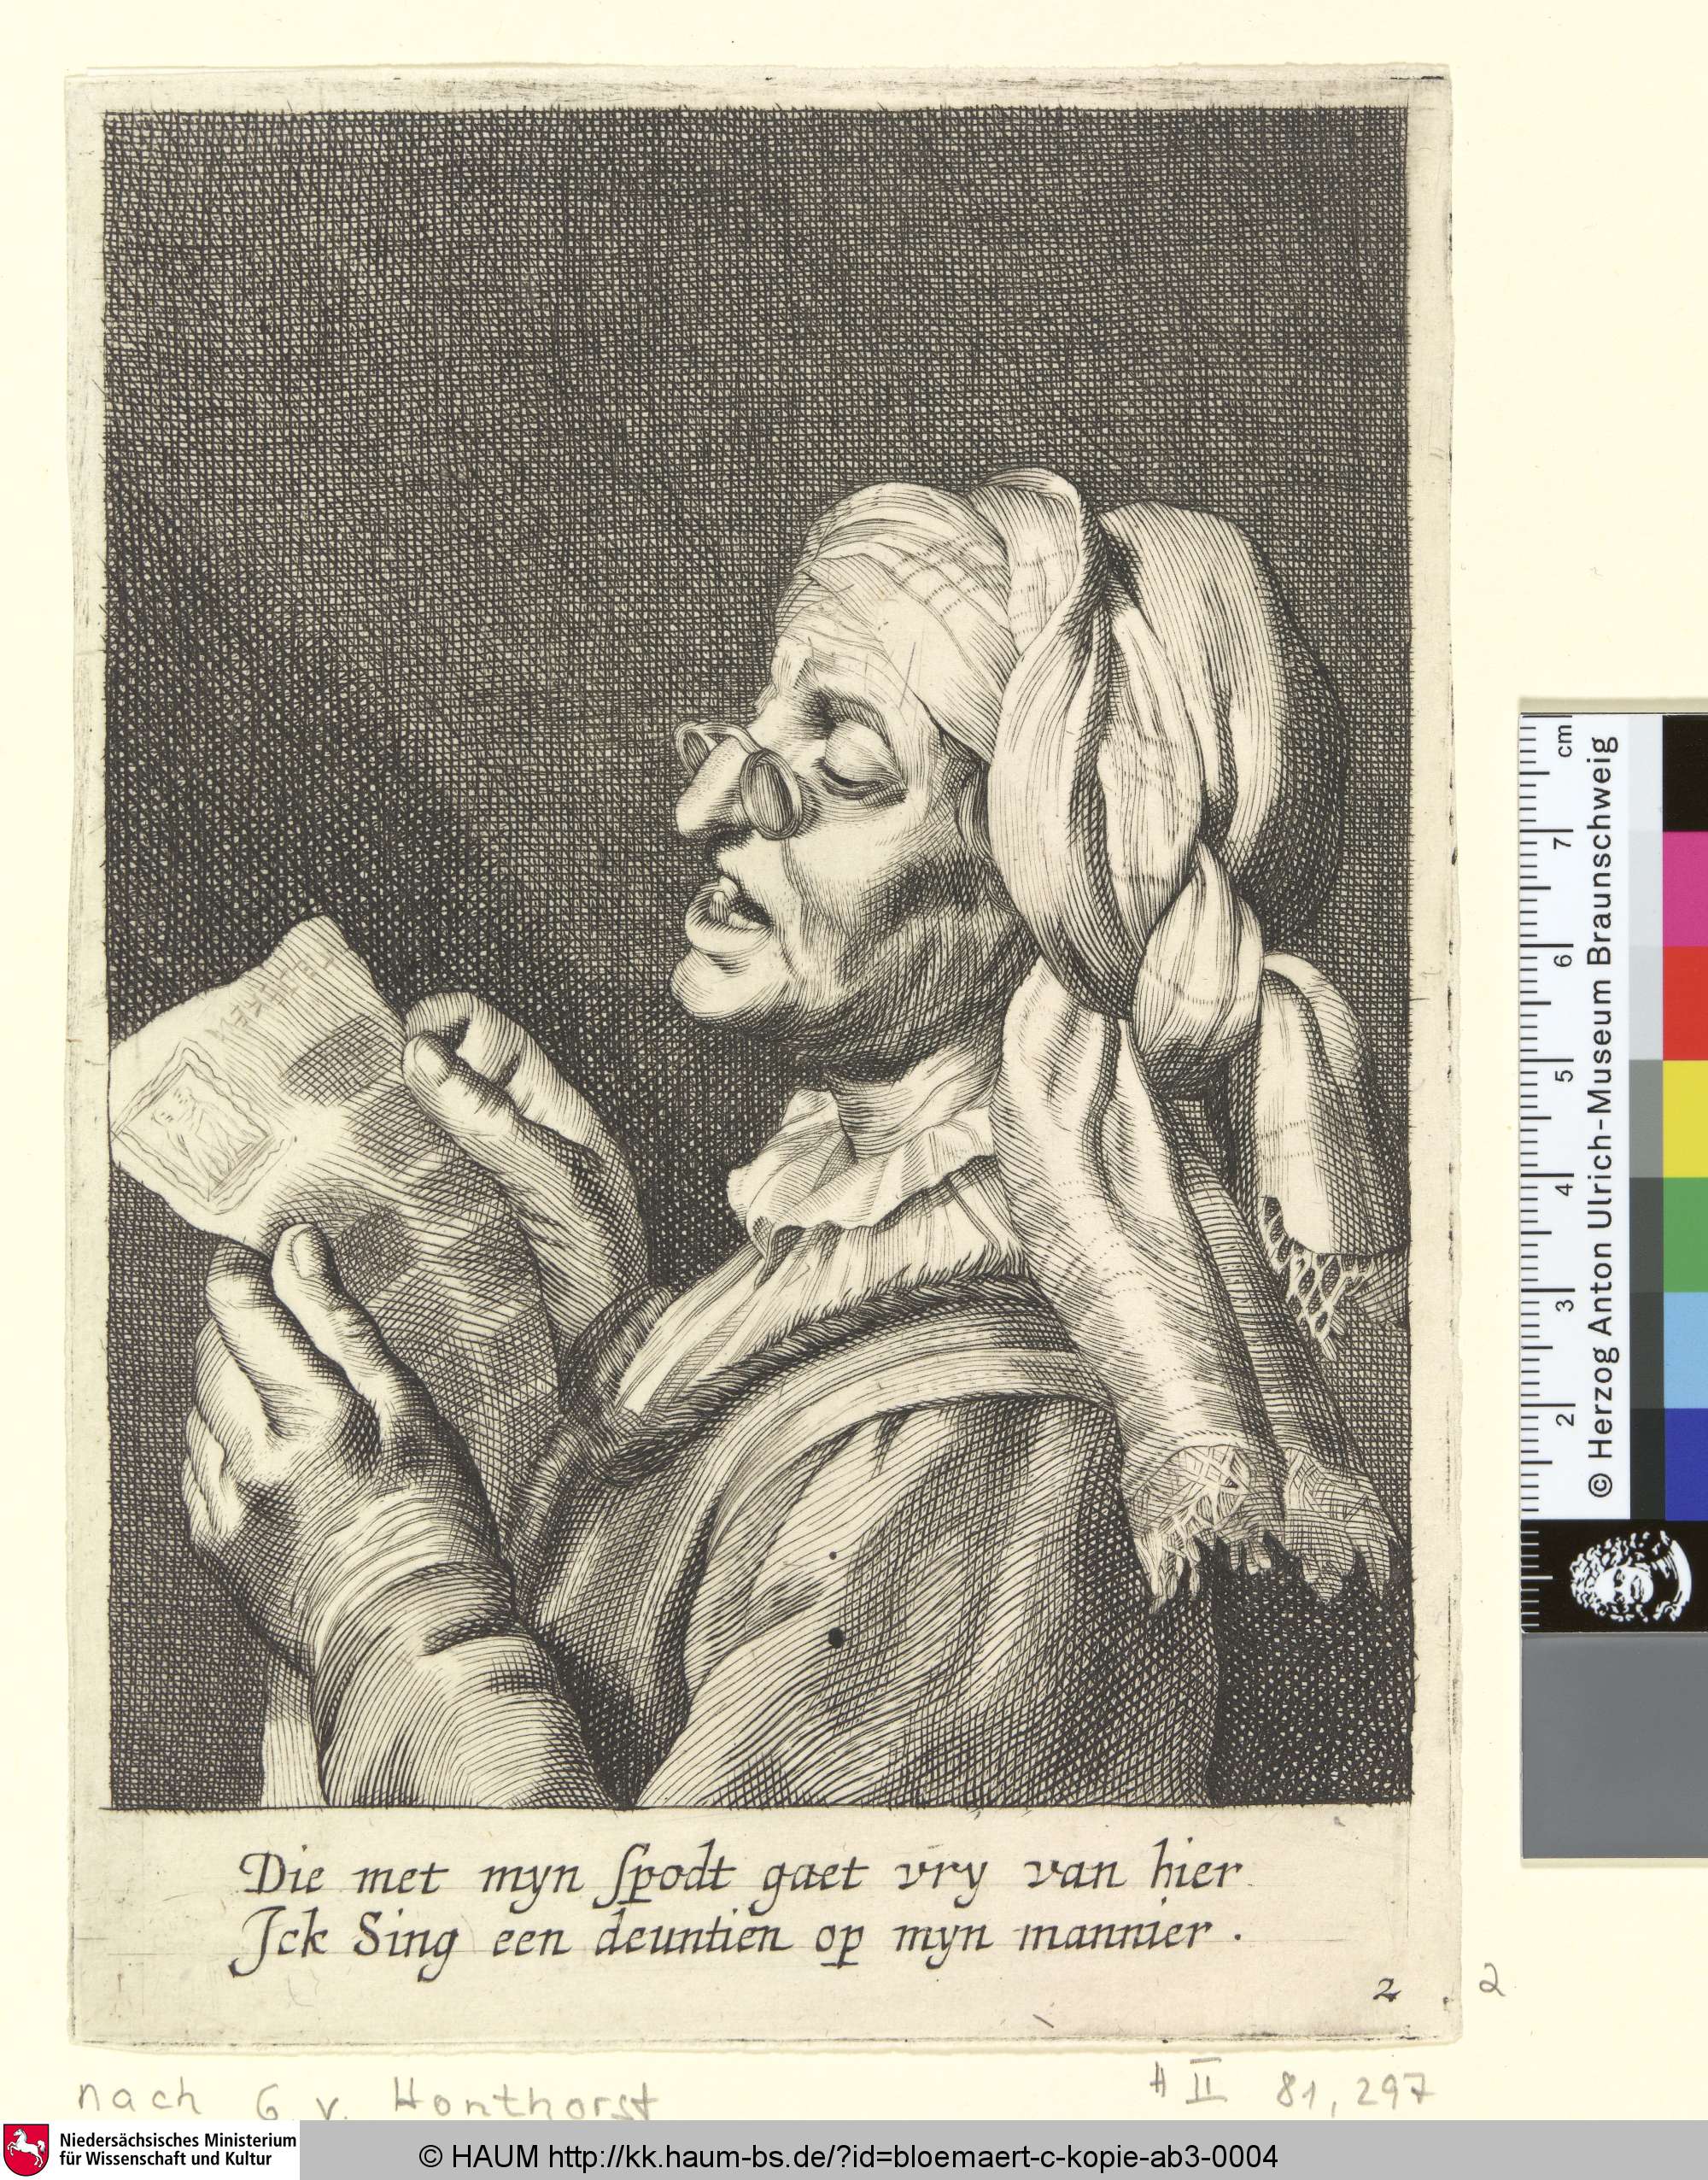 Die met myn ſpodt gaet vry van hier
Jck Sing een deuntien op myn mannier .
2
2
nach G v. Honthorst
A II 81, 297
cm
7
6
5
4
3
2
© Herzog Anton Ulrich-Museum Braunschweig
Niedersächsisches Ministerium
für Wissenschaft und Kultur
© HAUM http://kk.haum-bs.de/?id=bloemaert-c-kopie-ab3-0004